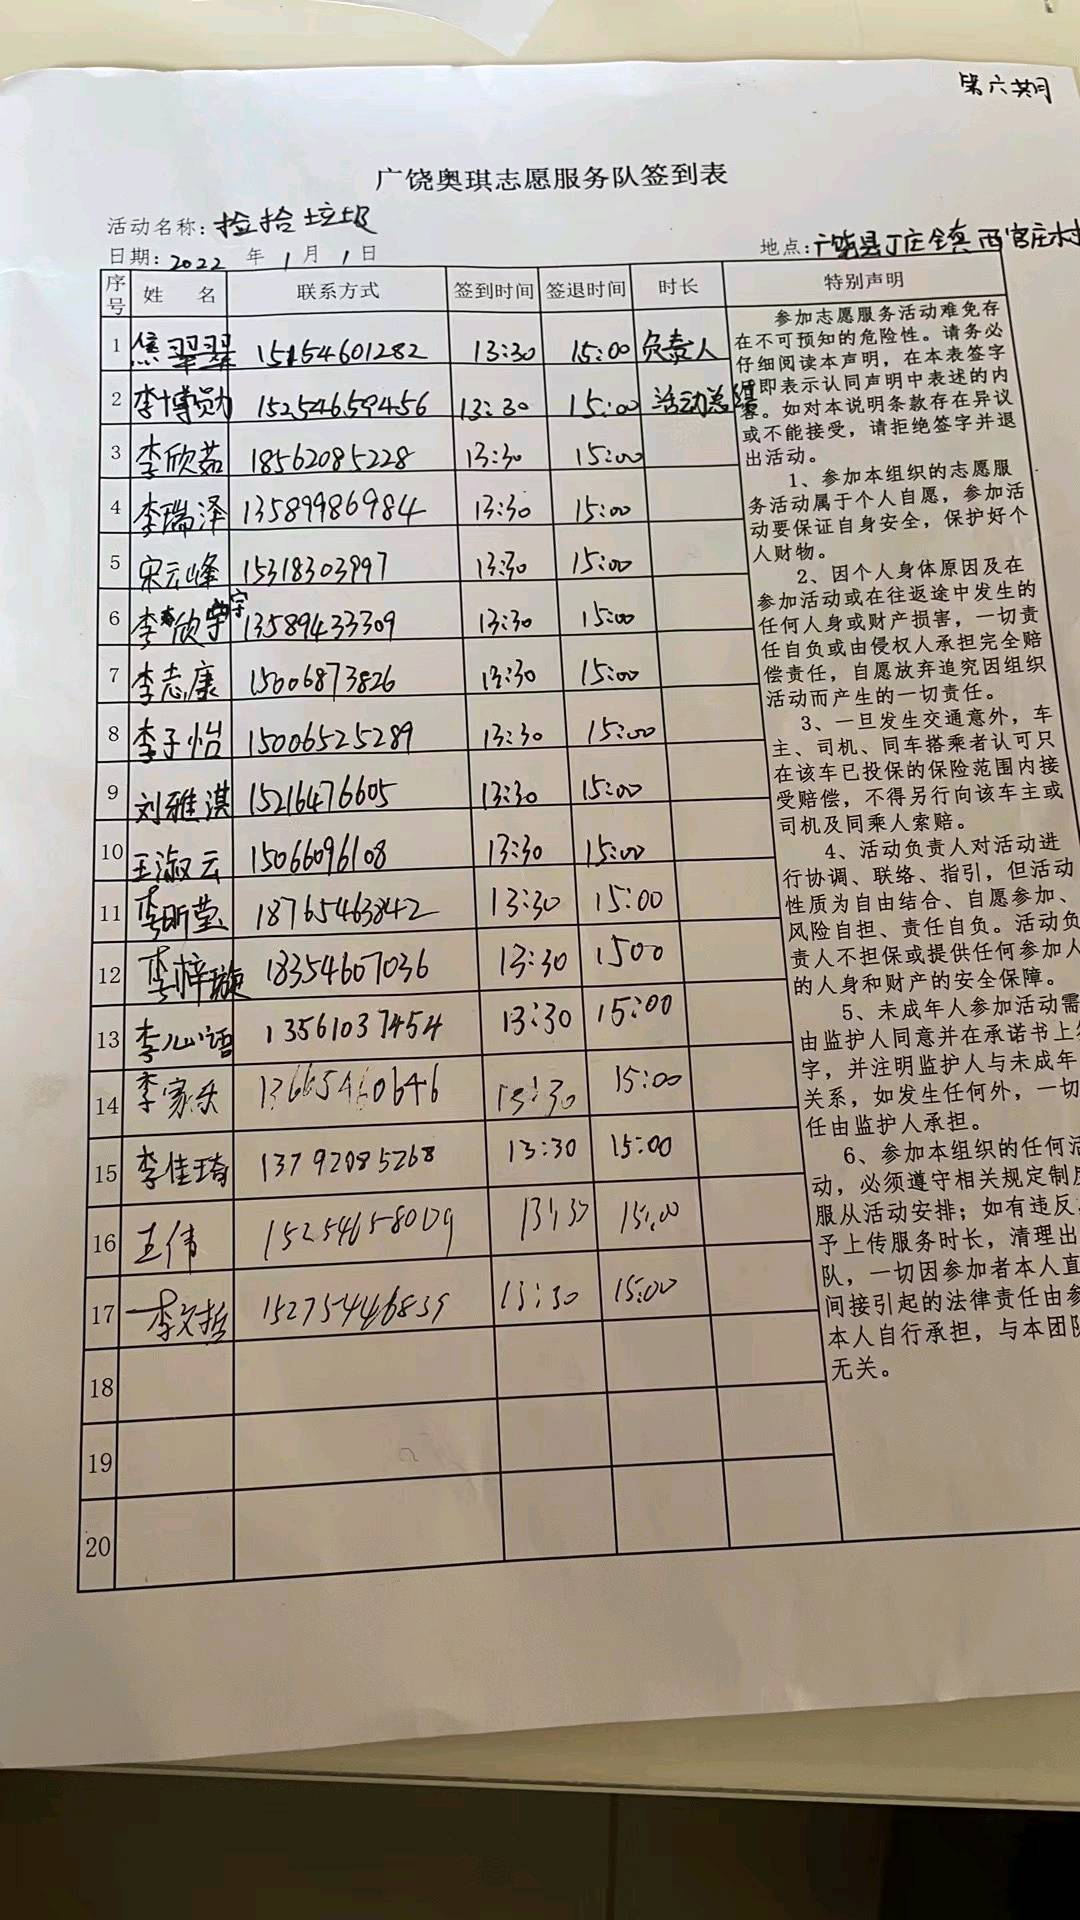 第六期
广饶奥琪志愿服务队签到表
活动名称：捡拾垃圾
日期：2022 年 1 月 1 日
地点：广饶县丁庄镇西官庄村
序号 姓 名 联系方式 签到时间 签退时间 时长 特别声明
1 焦翠翠 15154601282 13:30 15:00 负责人
2 李博勋 15254659456 13:30 15:00 活动总结
3 李欣茹 18562085228 13:30 15:00
4 李瑞泽 13589986984 13:30 15:00
5 宋云峰 15318303997 13:30 15:00
6 李欣宇 13589433309 13:30 15:00
7 李志康 15006873826 13:30 15:00
8 李子怡 15006525289 13:30 15:00
9 刘雅淇 15216476605 13:30 15:00
10 王淑云 15066096108 13:30 15:00
11 李昕莹 18765463842 13:30 15:00
12 李梓璇 18354607036 13:30 1500
13 李心语 13561037454 13:30 15:00
14 李家乐 13665460646 13:30 15:00
15 李佳琦 13792085268 13:30 15:00
16 王伟 15254658019 13:30 15:00
17 李文哲 15275446839 13:30 15:00
18
19
20
参加志愿服务活动难免存
在不可预知的危险性。请务必
仔细阅读本声明，在本表签字
即表示认同声明中表述的内
容。如对本说明条款存在异议
或不能接受，请拒绝签字并退
出活动。
1、参加本组织的志愿服
务活动属于个人自愿，参加活
动要保证自身安全，保护好个
人财物。
2、因个人身体原因及在
参加活动或在往返途中发生的
任何人身或财产损害，一切责
任自负或由侵权人承担完全赔
偿责任，自愿放弃追究因组织
活动而产生的一切责任。
3、一旦发生交通意外，车
主、司机、同车搭乘者认可只
在该车已投保的保险范围内接
受赔偿，不得另行向该车主或
司机及同乘人索赔。
4、活动负责人对活动进
行协调、联络、指引，但活动
性质为自由结合、自愿参加、
风险自担、责任自负。活动负
责人不担保或提供任何参加人
的人身和财产的安全保障。
5、未成年人参加活动需
由监护人同意并在承诺书上签
字，并注明监护人与未成年
关系，如发生任何外，一切
任由监护人承担。
6、参加本组织的任何活
动，必须遵守相关规定制度
服从活动安排；如有违反，
予上传服务时长，清理出
队，一切因参加者本人直
间接引起的法律责任由参
本人自行承担，与本团队
无关。